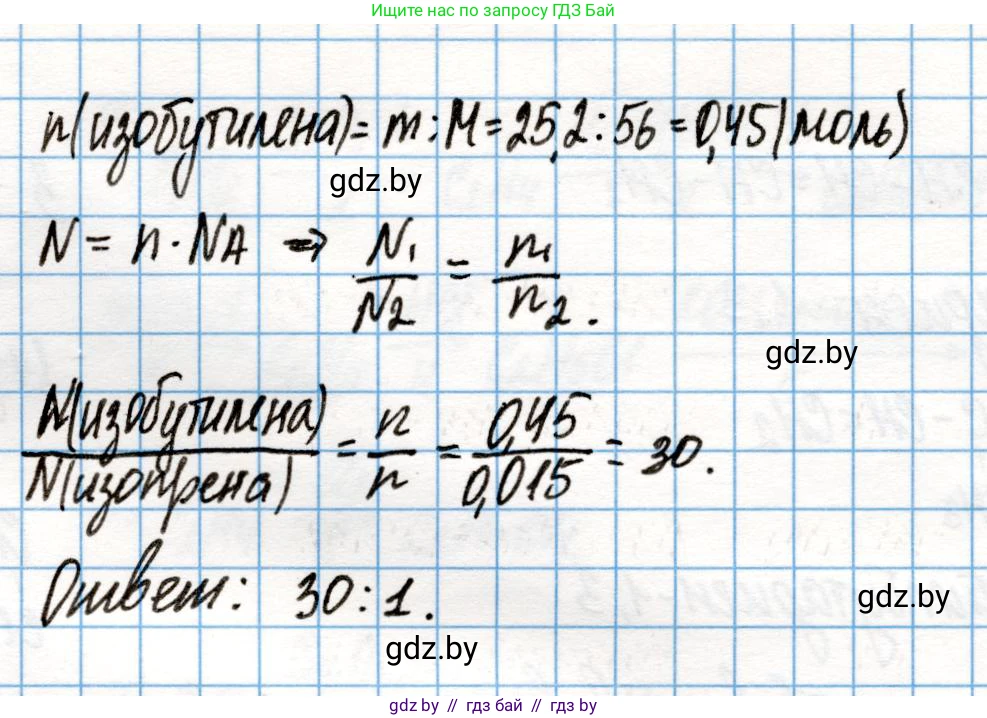 Ищите нас по запросу ГДЗ Бай
n(изобутилена)= m : M = 25,2 : 56 = 0,45 (моль)
gdz.by
N = n · NA ⇒ N1/N2 = n1/n2.
gdz.by
N(изобутилена)/N(изопрена) = n/n = 0,45/0,015 = 30.
Ответ: 30 : 1.
gdz.by
gdz.by
gdz.by // гдз бай // гдз by